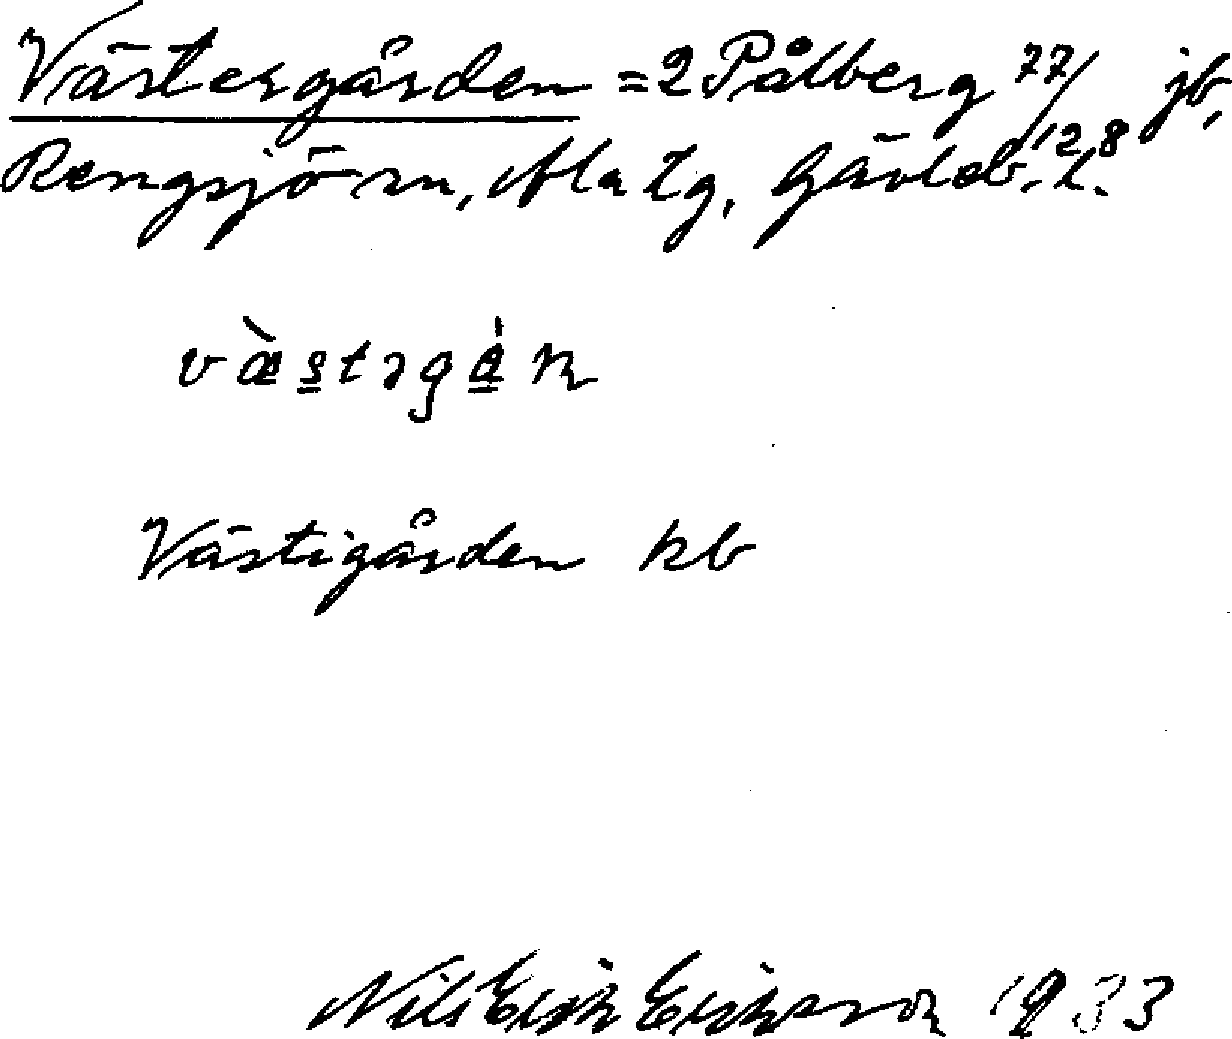 Västergården = 2 Pålberg 77/128 jb,
Rengsjö sn, Ala tg, Gävleb. l.
västəgån
Västigården kb
Nils Erik Eriksson 1933